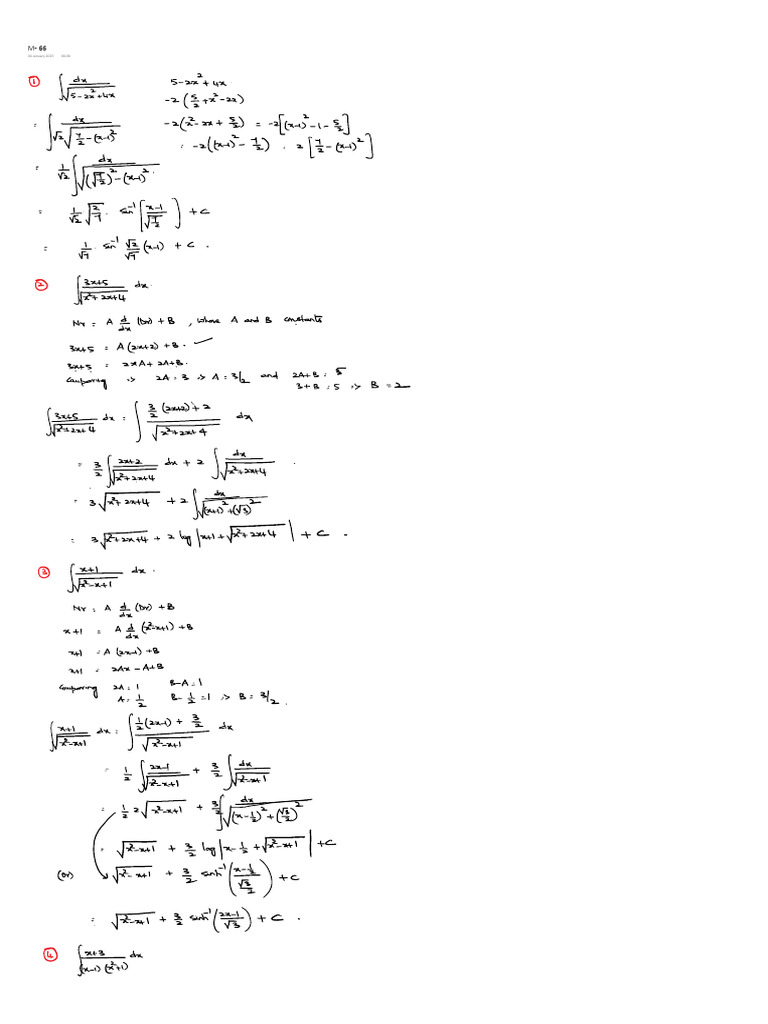 M- 66
① ∫ dx/√(5-2x²+4x)    5-2x²+4x
-2(5/2+x²-2x)
= ∫ dx/(√2 √(7/2-(x-1)²))    -2(x²-2x+5/2) = -2[(x-1)²-1-5/2]
= 1/√2 ∫ dx/√((√(7/2))²-(x-1)²)    : -2((x-1)²-7/2) . 2[7/2-(x-1)²]
= 1/√2 √(2/7) . sin⁻¹[(x-1)/√(7/2)] + C
= 1/√7 . sin⁻¹ √2/√7 (x-1) + C .
② ∫ (3x+5)/√(x²+2x+4) dx.
Nr = A d/dx (Dr) + B , where A and B constants
3x+5 = A(2x+2) + B. ✓
3x+5 = 2xA + 2A+B.
Comparing => 2A=3 => A=3/2 and 2A+B = 5
3+B=5 => B=2
∫ (3x+5)/√(x²+2x+4) dx = ∫ (3/2 (2x+2) + 2)/√(x²+2x+4) dx
= 3/2 ∫ (2x+2)/√(x²+2x+4) dx + 2 ∫ dx/√(x²+2x+4) .
= 3√(x²+2x+4) + 2 ∫ dx/√((x+1)²+(√3)²)
= 3√(x²+2x+4) + 2 log|x+1+√(x²+2x+4)| + C .
③ ∫ (x+1)/√(x²-x+1) dx .
Nr = A d/dx (Dr) + B
x+1 = A d/dx (x²-x+1) + B
x+1 = A(2x-1) + B
x+1 = 2Ax - A+B
Comparing 2A=1    B-A=1
A=1/2    B-1/2=1 => B=3/2 .
∫ (x+1)/√(x²-x+1) dx = ∫ (1/2(2x-1) + 3/2)/√(x²-x+1) dx
= 1/2 ∫ (2x-1)/√(x²-x+1) + 3/2 ∫ dx/√(x²-x+1)
= 1/2 2√(x²-x+1) + 3/2 ∫ dx/√((x-1/2)²+(√3/2)²)
= √(x²-x+1) + 3/2 log|x-1/2+√(x²-x+1)| + C
(Or) √(x²-x+1) + 3/2 sinh⁻¹((x-1/2)/(√3/2)) + C
= √(x²-x+1) + 3/2 sinh⁻¹((2x-1)/√3) + C .
④ ∫ (x+3)/((x-1)(x²+1)) dx